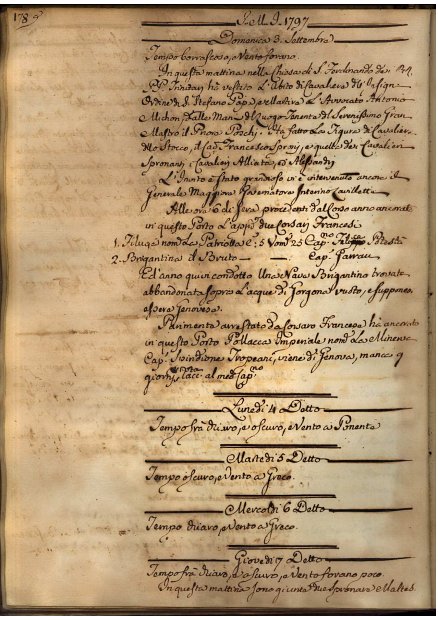 178
S.M.J. 1797
Domenica 3. Settembre
Tempo borrascoso, e Vento forano.
In questa mattina nella Chiesa di S. Ferdinando de
PP. Trinitari hà vestito L'Abito di Cavaliere dell' Insigne
Ordine di S. Stefano Papa, e Martire L'Avvocato Antonio
Michon, dalle Mani del Luogo Tenente del Serenissimo Gran
Mastro il Priore Poschi. Ha fatto La Figura di Cavaliere
dello Stocco, il Cav. Francesco Sproni, e quelle de Cavalieri
Spronanti i Cavalieri Alliata, ed
L'Invito è stato grandioso vi è intervenuto ancora il
Generale Maggiore Governatore Interino Lavillette
Alle ore 6 di sera procedenti dal Corso anno ancorato
in questo Porto L'appiè due Corsari Francesi
1. Filuga nom. La Patriotta C. 5 Uom. 25 Cap.no Filippo Podestà
2. Brigantina il Bruto — — Cap.no Jarrau
Ed' anno quivi condotto Una Nave Brigantino trovata
abbandonata sopra L'acque di Gorgona vuoto, e suppone
essere Genovese.
Parimente arrestato da Corsaro Francese hà ancorato
in questo Porto Pollacca Imperiale nom. La Minerva
Cap.no Spiridione Tropeani, viene di Genova, manca
giorni, al med. Cap.no
Lunedì 4 Detto
Tempo frà chiaro, e oscuro, e Vento a Ponente
Martedì 5 Detto
Tempo oscuro, e Vento a Greco.
Mercoldì 6 Detto
Tempo chiaro, e Vento a Greco.
Giovedì 7 Detto
Tempo frà chiaro, e oscuro, e Vento forano poco
In questa mattina sono giunte due Spronare Maltesi